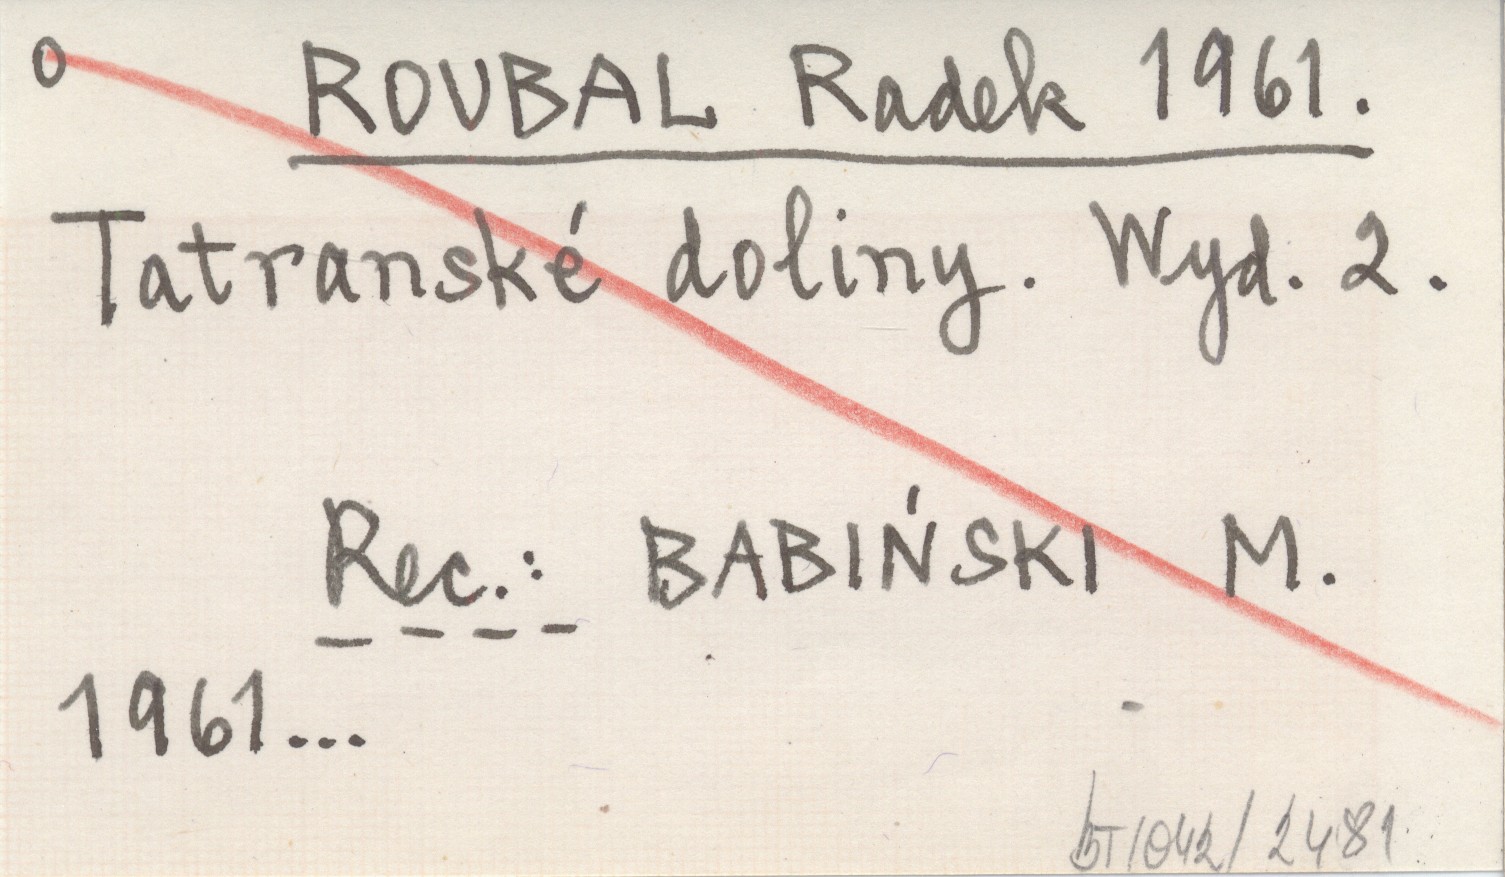 o ROUBAL Radek 1961.
Tatranské doliny. Wyd. 2.
Rec.: BABIŃSKI M.
1961...
BT/042/2481